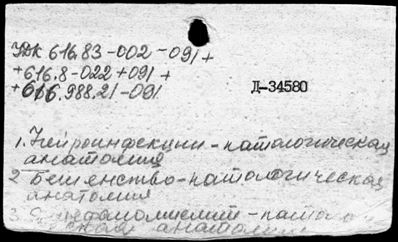 УДК 616.83-002-091+
+616.8-022+091+
+616.988.21-091
Д-34580
1. Нейроинфекции-патологическая
анатомия
2 Бешенство-патологическая
анатомия
3. Энцефаломиелит-пато
ческая анатомия